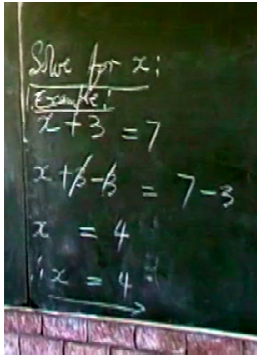 Solve for x:
Example:
x + 3 = 7
x + 3 - 3 = 7 - 3
x = 4
∴ x = 4